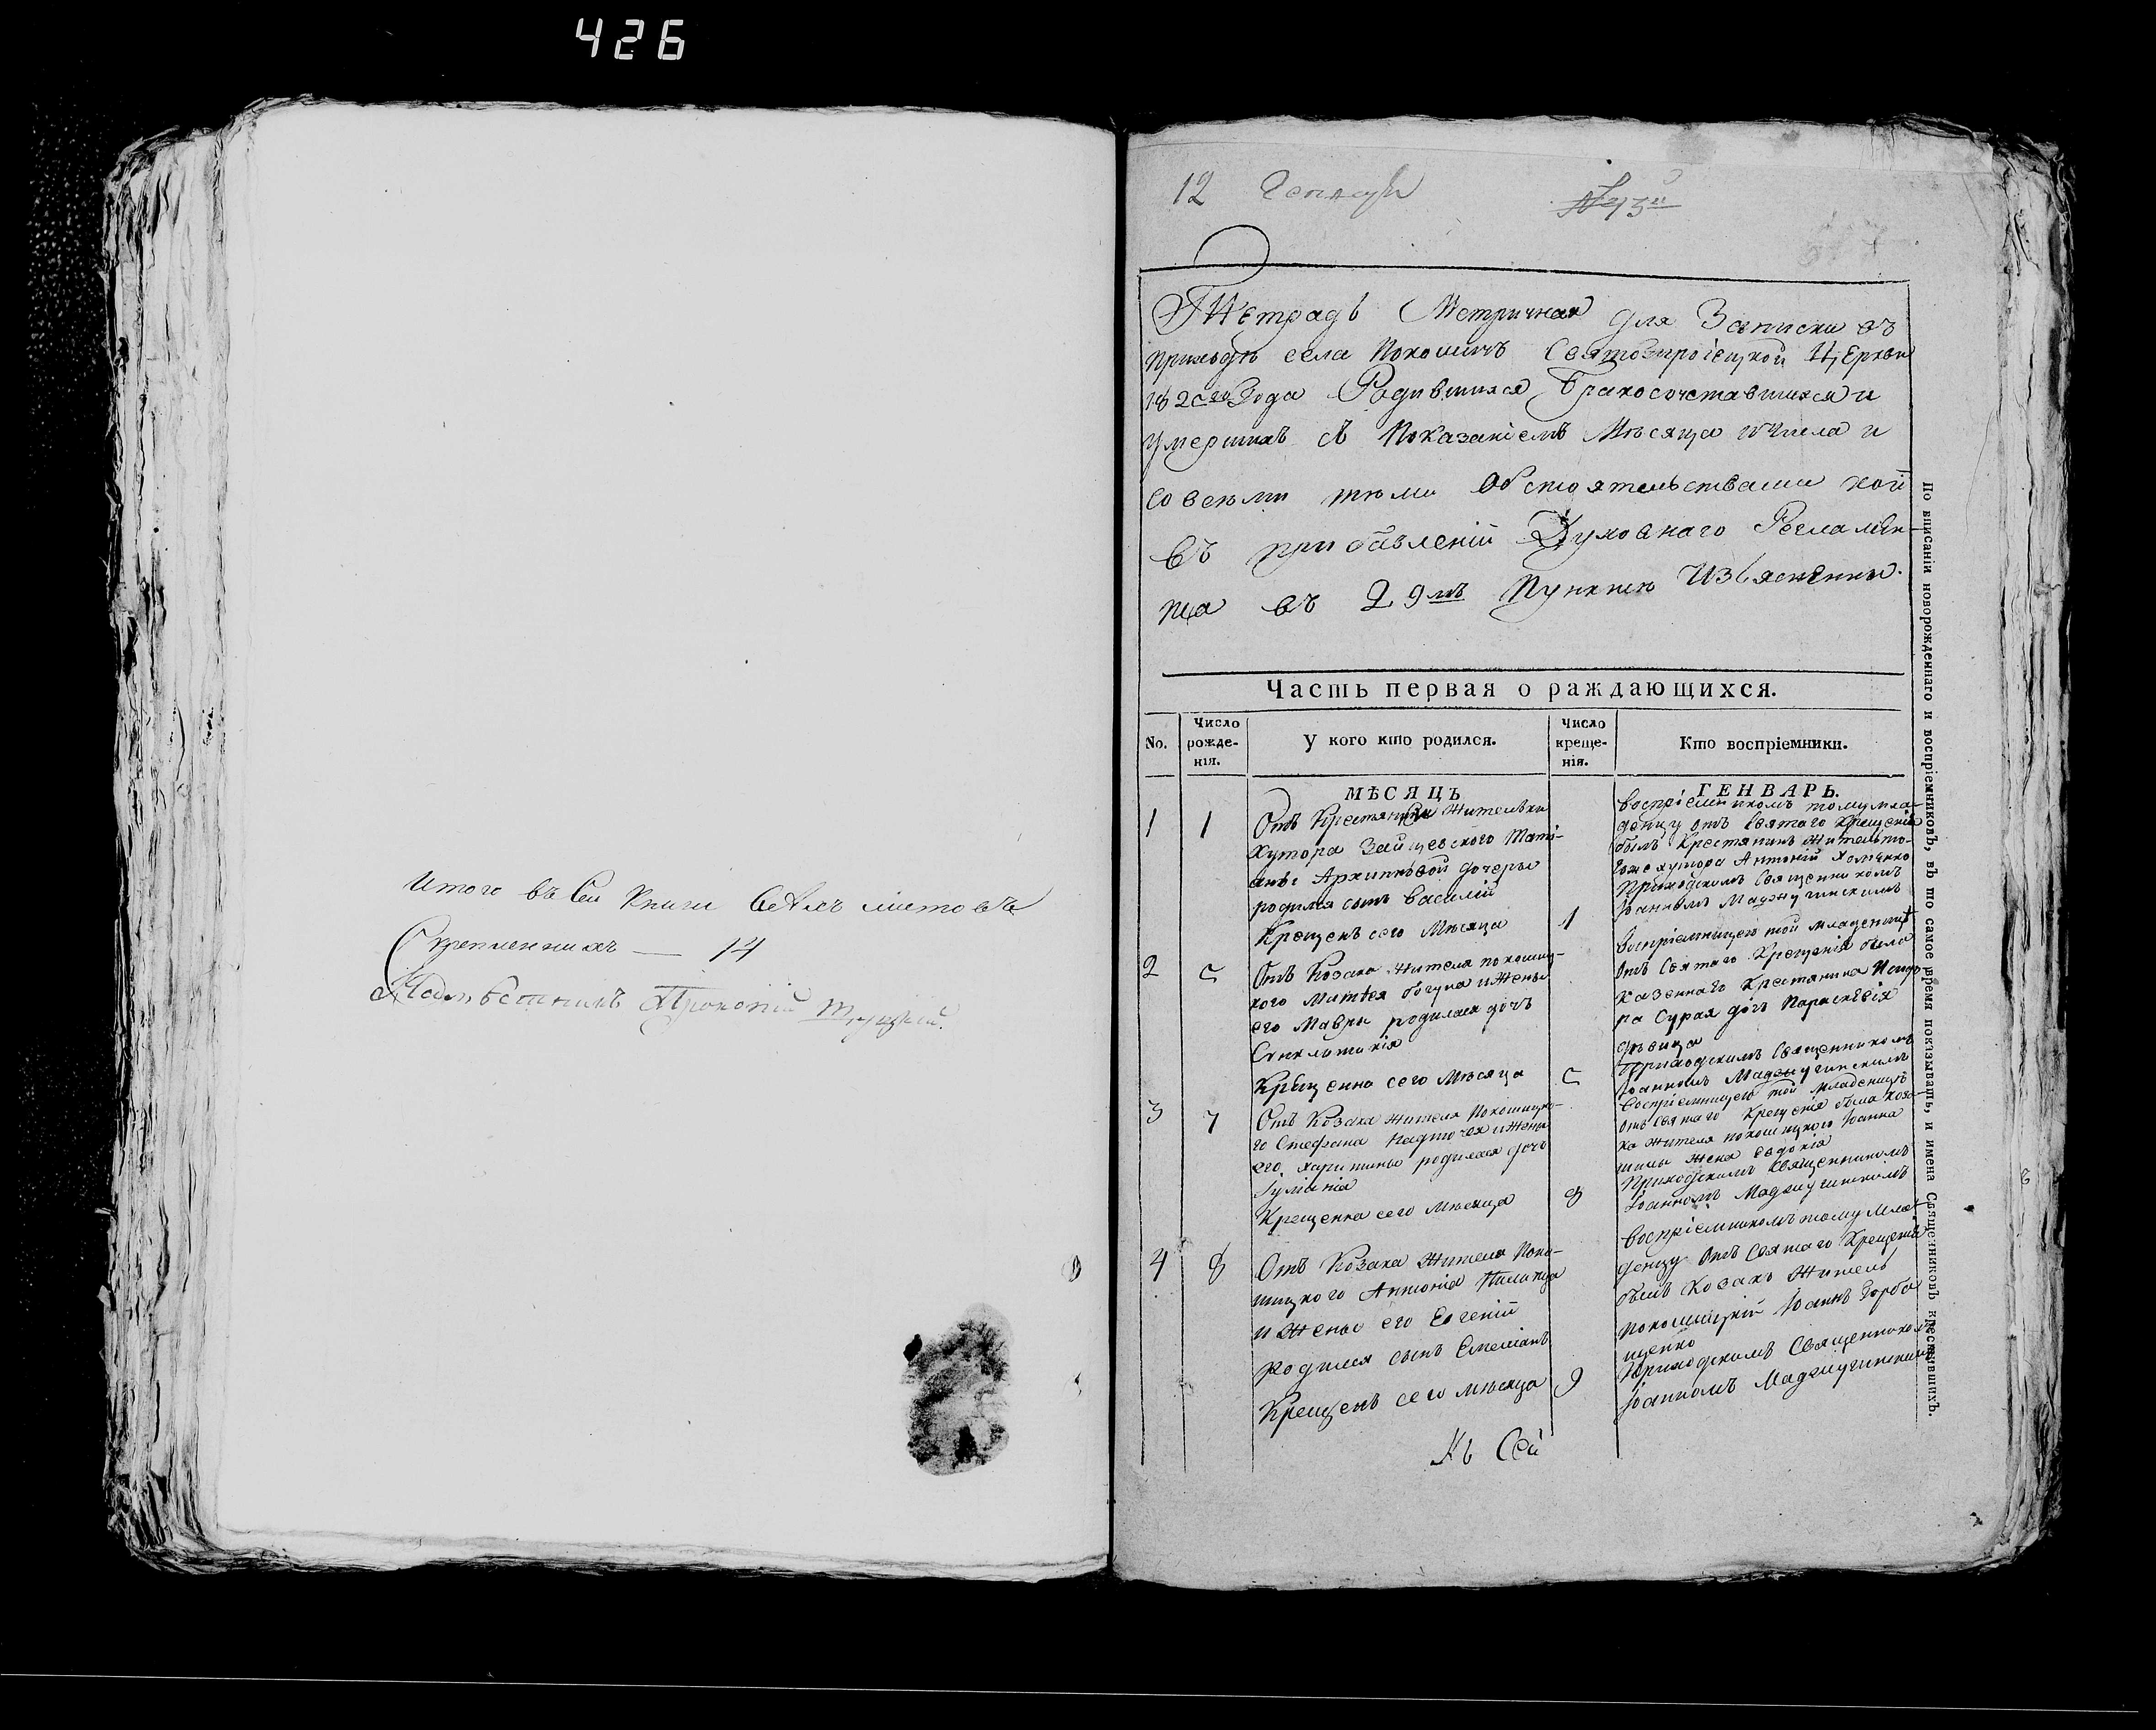 426
Итого въ Сей Книги Всехъ листовъ
Скрепленныхъ — 14
Прокопій
12
Тетрадь Метричная Для Записки въ
приходѣ села Покошичъ Святотроіецкой Церкви
182 Года Родившихся Бракосочетавшихся и
Умершихъ съ Показаніемъ Мѣсяца и Числа и
Со всѣми тѣми Обстоятельствами кои
Въ прибавленіи Духовнаго Регламен-
та въ 29мъ Пунктѣ Изъясненны.
Часть первая о раждающихся.
No.
Число рожде-нія.
У кого кто родился.
Число креще-нія.
Кто воспріемники.
МѢСЯЦЪ
ГЕНВАРЬ.
1
1
Отъ Крестянки Жительки
Хутора Зайцевского Тати-
аны Архиповой дочеры
родился сынъ Василій
Крещенъ сего Мѣсяца
1
Воспріемникомъ тому мла-
денцу отъ Святаго Крещенія
былъ Крестянинъ Житель то-
гоже хутора Антоній Хоменко
Приходскимъ Священникомъ
Іоанномъ
2
5
Отъ Козака Жителя покошиц-
кого Матѳея и Жены
его Мавры родилась дочъ
Синклитикія
Крещенна сего Мѣсяца
5
Воспріемницею той младеницѣ
Отъ Святаго Крещенія была
Казеннаго Крестянина
Сурая дочь Параскевія
дѣвица
Приходскимъ Священникомъ
Іоанномъ
3
7
Отъ Козака Жителя Покошицко-
го Стефана и Жены
его харитины родилася дочь
Іуліанія
Крещенна сего Мѣсяца
8
Воспріемницею той Младеницѣ
Отъ Святаго Крещенія была Коза-
ка Жителя покошицкого Іоанна
жена Евдокія
Приходскимъ Священникомъ
Іоанномъ
4
8
Отъ Козака Жителя Поко-
шицкого Антонія Пилипца
и Жены его Евгеніи
родился сынъ Емеліанъ
Крещенъ сего мѣсяца
9
Воспріемникомъ тому Мла-
денцу Отъ Святаго Крещенія
былъ Козакъ Житель
покошицкій Іоаннъ Горба
щенко
Приходскимъ Священникомъ
Іоанномъ
Къ Сей
По вписаніи новорожденнаго и воспріемниковъ, въ то самое время показывать, и имена Священниковъ крестившихъ.